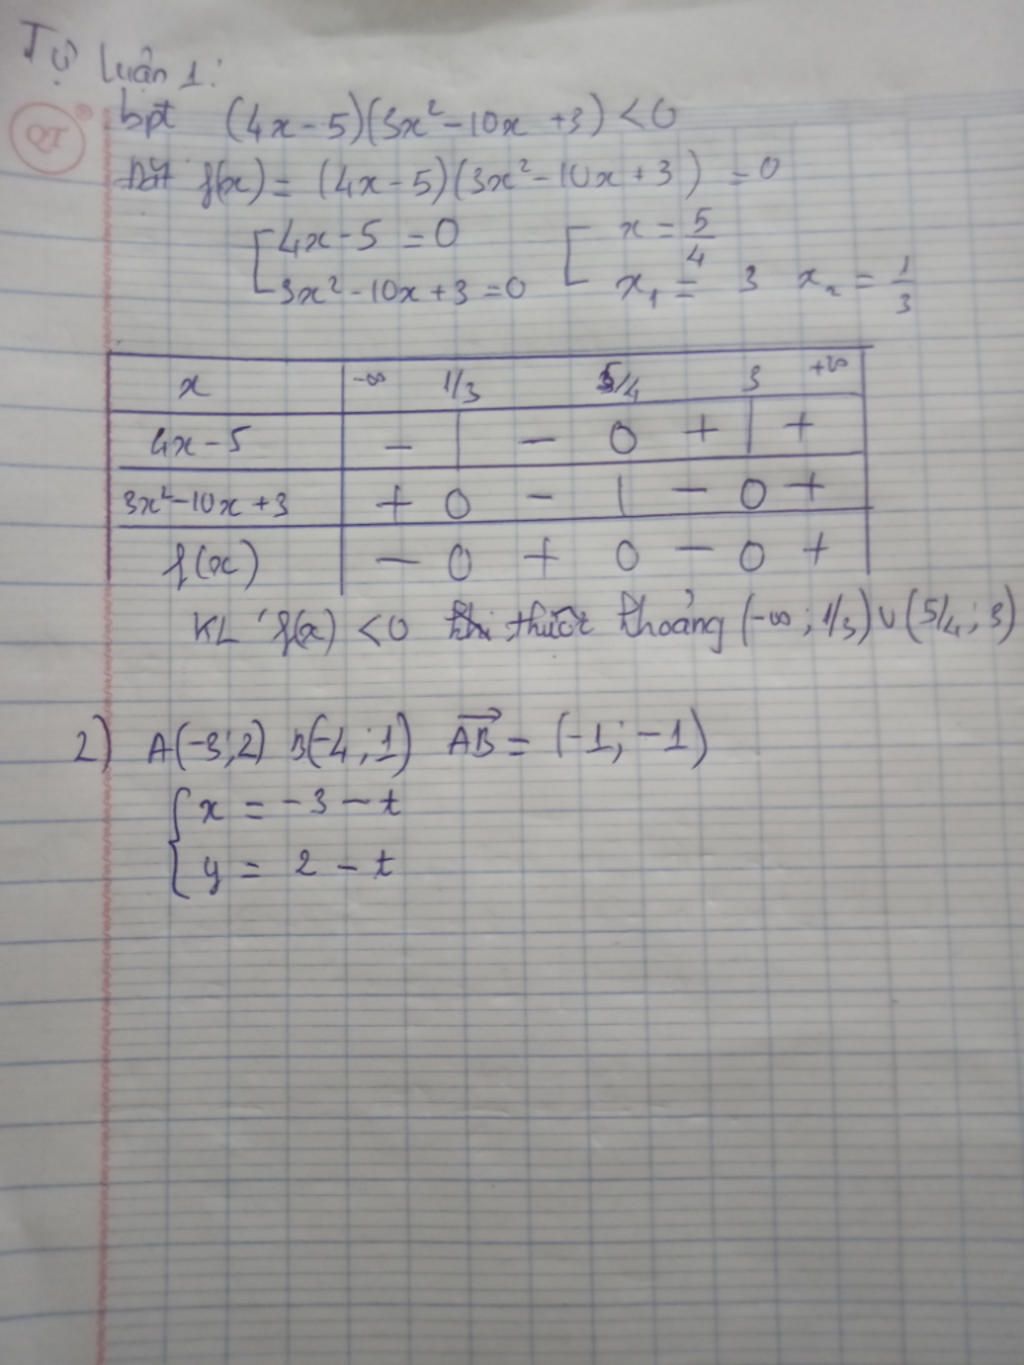 Tự luận 1:
bpt (4x-5)(3x²-10x+3)<0
Đặt f(x) = (4x-5)(3x²-10x+3) = 0
[4x-5 = 0 [x = 5/4
3x²-10x+3=0 x₁ = 3 x₂ = 1/3
x -∞ 1/3 5/4 3 +∞
4x-5 - | - 0 + | +
3x²-10x+3 + 0 - | - 0 +
f(x) - 0 + 0 - 0 +
KL f(x) <0 khoảng (-∞; 1/3) ∪ (5/4; 3)
2) A(-3;2) B(-4;1) AB→ = (-1; -1)
{x = -3-t
y = 2-t